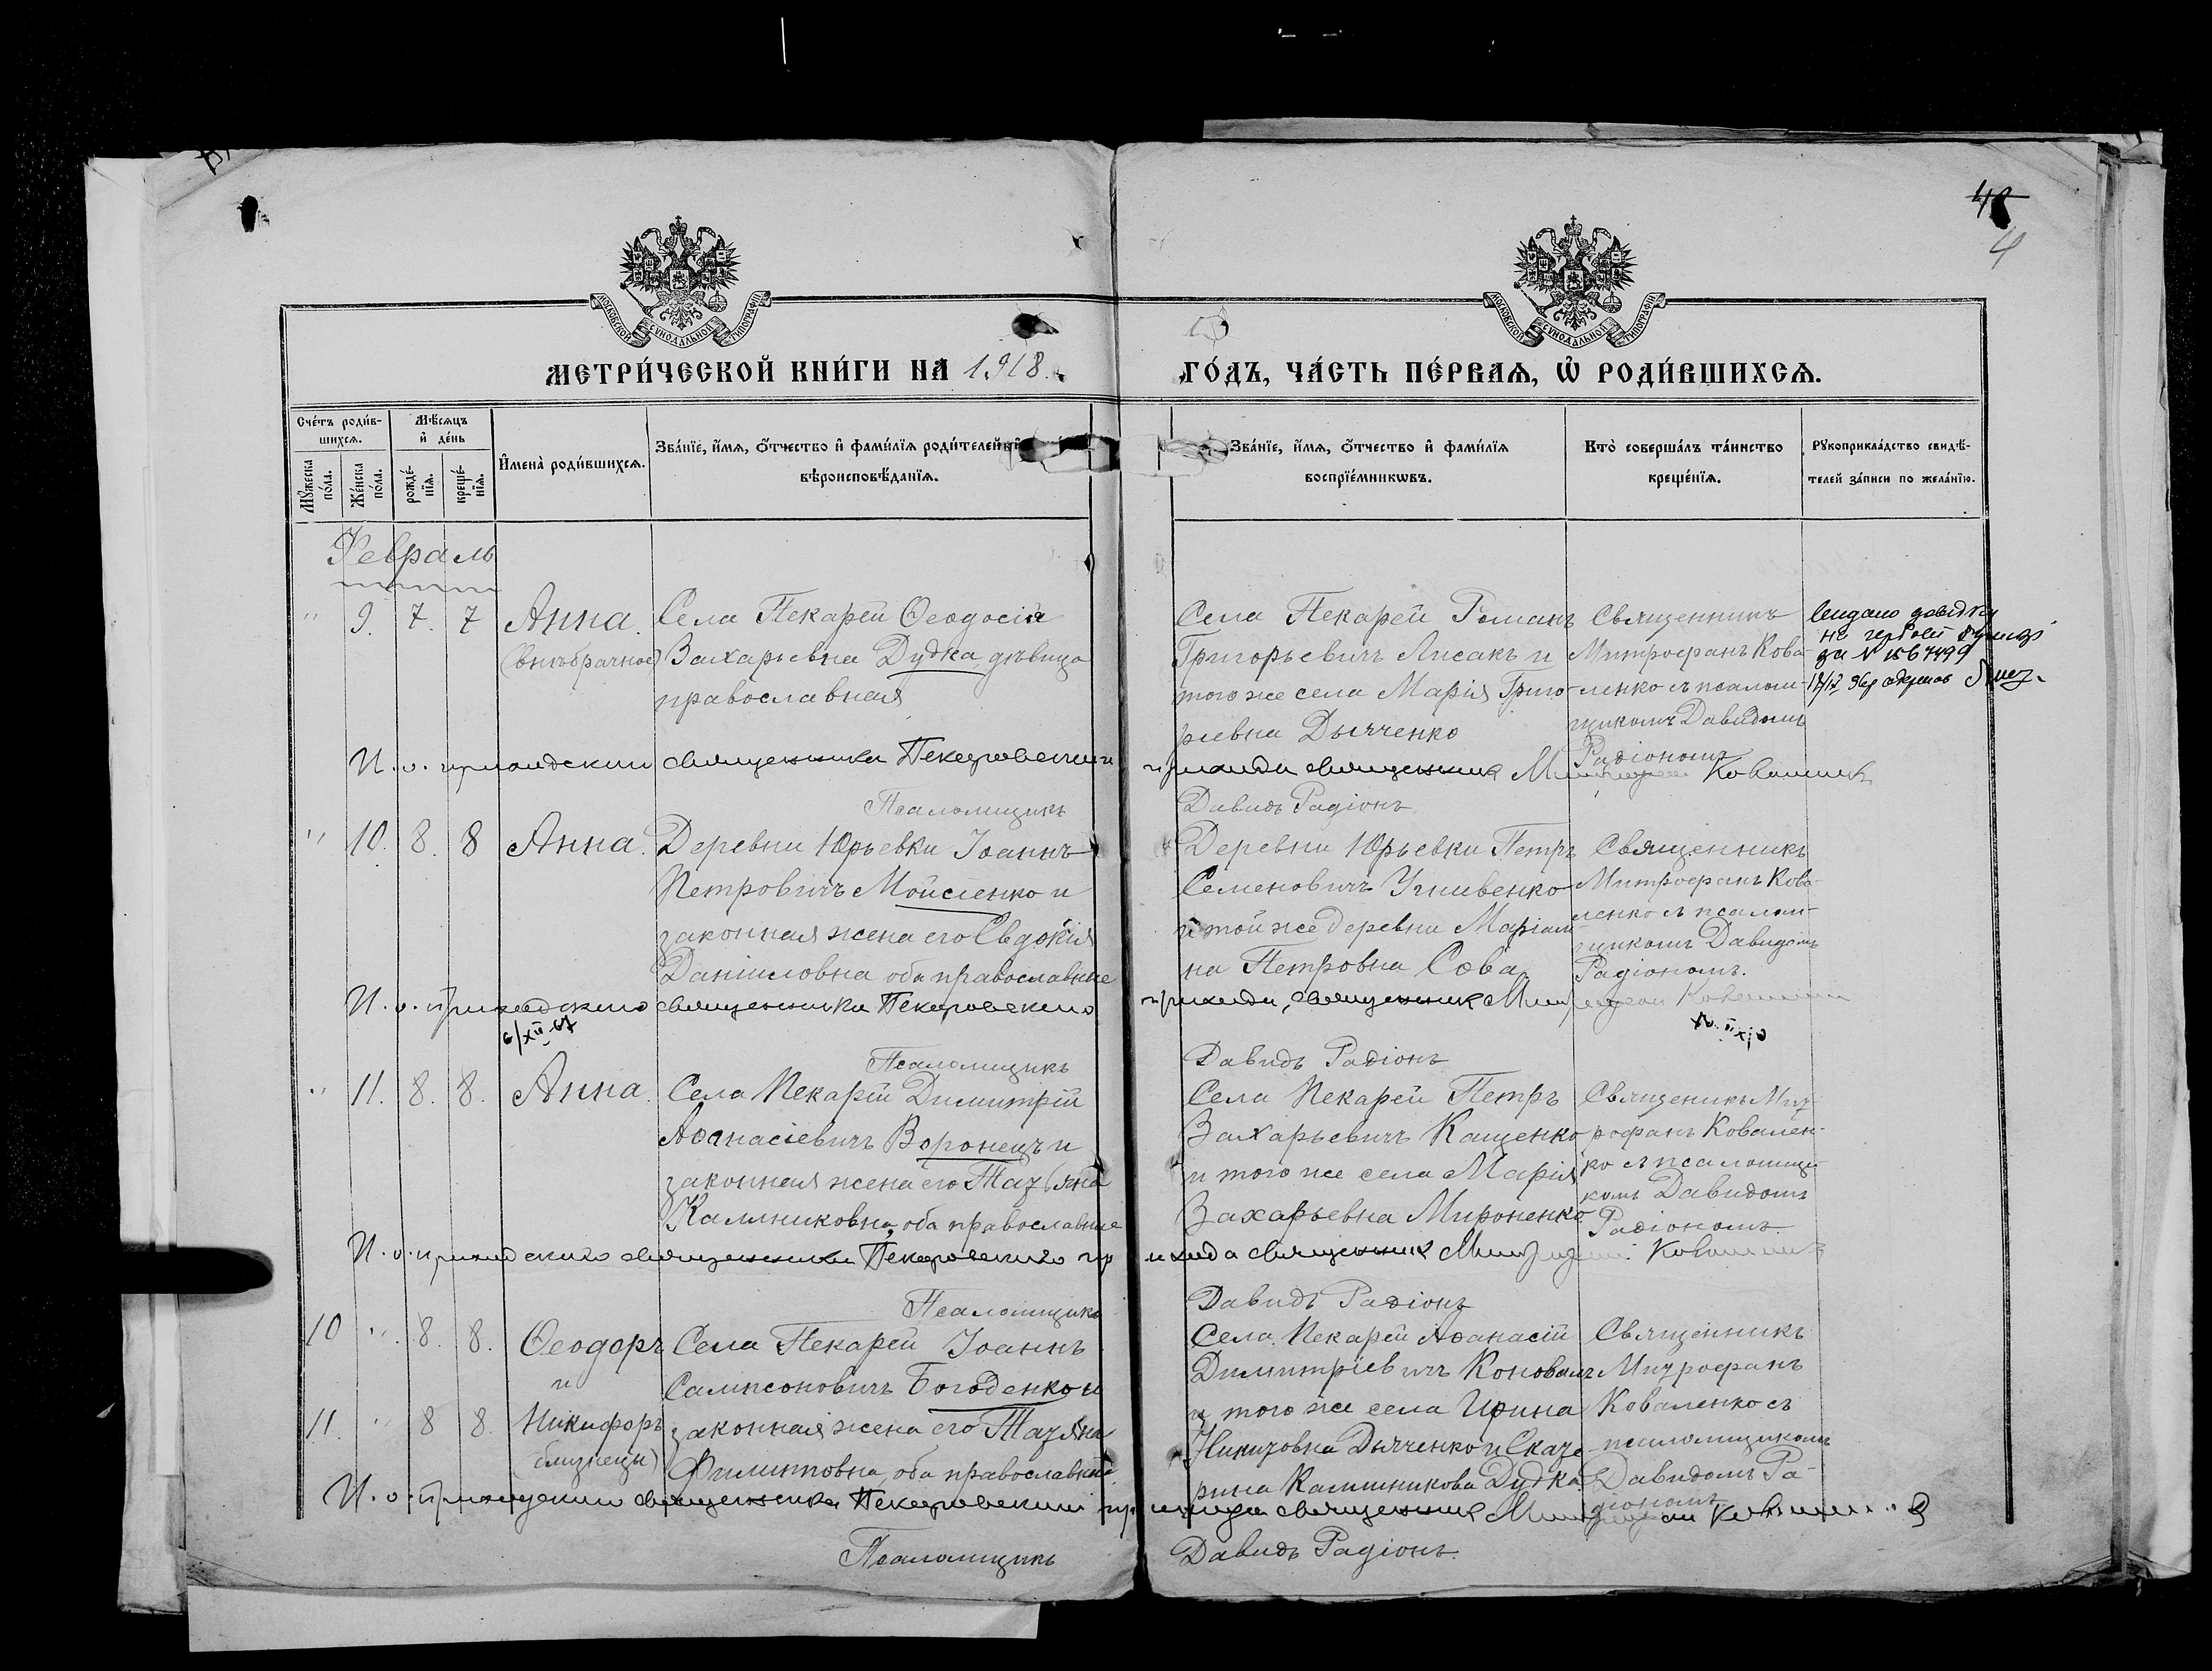 48
4
МОСКОВСКОЙ СѴНОДАЛЬНОЙ ТИПОГРАФІИ
МОСКОВСКОЙ СѴНОДАЛЬНОЙ ТИПОГРАФІИ
МЕТРИ́ЧЕСКОЙ КНИ́ГИ НА 1918
ГО́ДЪ, ЧА́СТЬ ПЕ́РВАѦ, Ѡ҆ РОДИ́ВШИХСѦ.
Сче́тъ роди́в-
шихсѧ.
Мѣ́сѧцъ
и҆ де́нь
Мꙋ́жеска
по́ла.
Же́нска
по́ла.
рожде́-
нїѧ.
креще́-
нїѧ.
И҆мена̀ роди́вшихсѧ.
Зва́нїе, и҆́мѧ, ѻ҆́тчество и҆ фами́лїѧ роди́телей и҆
вѣроисповѣ́данїѧ.
Зва́нїе, и҆́мѧ, ѻ҆́тчество и҆ фами́лїѧ
воспрїе́мникѡвъ.
Кто̀ соверша́лъ та́инство
креще́нїѧ.
Рꙋкоприкла́дство свидѣ́-
телей за́писи по жела́нїю.
Февраль
" 9. 7. 7 Анна.
(внѣбрачное)
Села Пекарей Ѳеодосія
Захарьевна Дудка, дѣвица
православная
Села Пекарей Романъ
Григорьевичъ Лисакъ и
того же села Марія Григо-
рьевна Дьяченко
Священникъ
Митрофанъ Кова-
ленко съ псалом-
щикомъ Давидомъ
Радіономъ
Видано довідку
И. о. приходскаго священника Пекаревскаго прихода священникъ Митрофан Коваленко
Псаломщикъ Давидъ Радіонъ
" 10. 8. 8 Анна.
Деревни Юрьевки Іоаннъ
Петровичъ Мойсіенко и
законная жена его Евдокія
Даніиловна, оба православные
Деревни Юрьевки Петръ
Семеновичъ Унивенко
и той же деревни Маріам-
на Петровна Сова.
Священникъ
Митрофанъ Кова-
ленко съ псалом-
щикомъ Давидомъ
Радіономъ.
И. о. приходскаго священника Пекаревскаго прихода, священникъ Митрофан Коваленко
6/XII-67
Псаломщикъ Давидъ Радіонъ
" 11. 8. 8. Анна.
Села Пекарей Димитрій
Аѳанасіевичъ Воронецъ и
законная жена его Татьяна
Калиниковна, оба православные
Села Пекарей Петръ
Захарьевичъ Кащенко
и того же села Марія
Захарьевна Мироненко
Священикъ Мит-
рофанъ Ковален-
ко съ псаломщи-
комъ Давидомъ
Радіономъ
И. о. приходскаго священника Пекаревскаго прихода священникъ Митрофан Коваленко
Псаломщикъ Давидъ Радіонъ
10 " 8. 8. Ѳеодоръ
и
11. " 8 8. Никифоръ
(близнецы)
Села Пекарей Іоаннъ
Сампсоновичъ Богоденко и
законная жена его Татьяна
Филипповна, оба православные
Села Пекарей Аѳанасій
Димитріевичъ Коновалъ
и того же села Ирина
Никитовна Дьяченко и Екате-
рина Калиникова Дудка
Священникъ
Митрофанъ
Коваленко съ
псаломщикомъ
Давидомъ Ра-
діономъ
И. о. приходскаго священника Пекаревскаго прихода священникъ Митрофан Коваленко
Псаломщикъ Давидъ Радіонъ